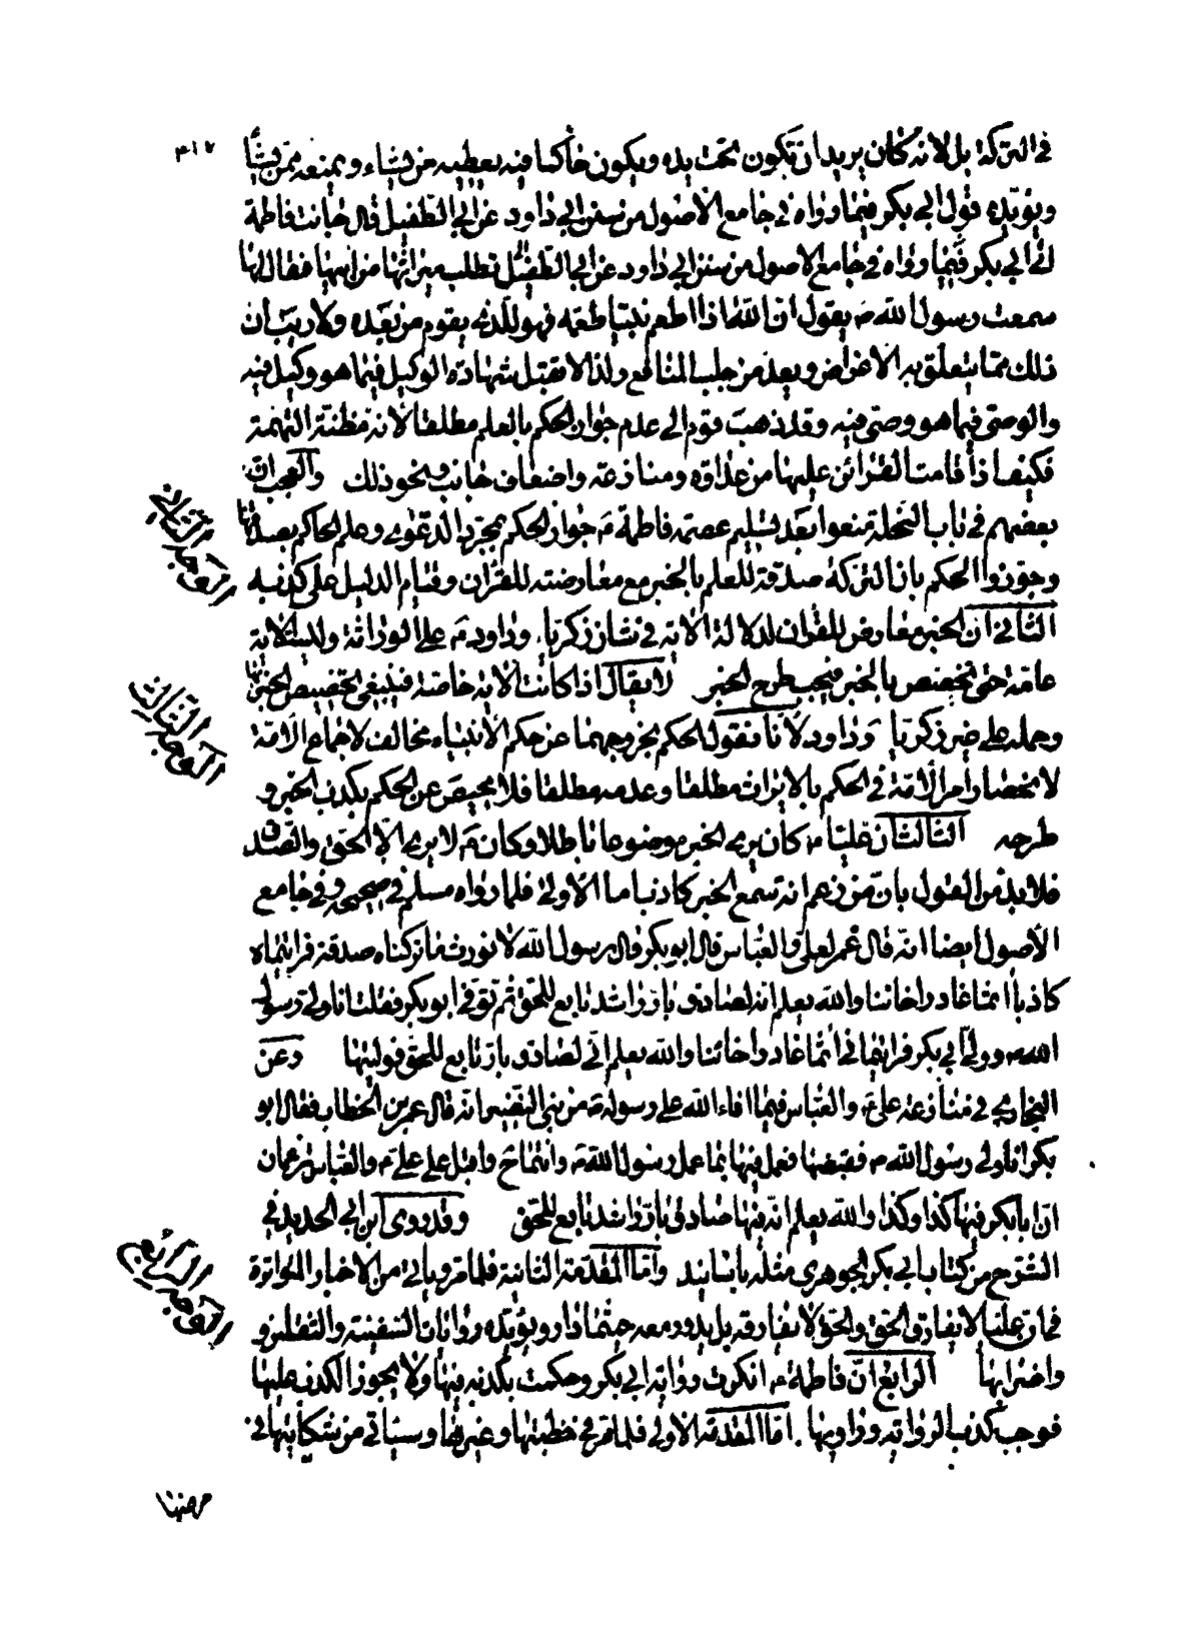 ٣١٧
في التركة بل لانه كان يريد ان تكون تحت يده ويكون حاكما فيه يعطيه من يشاء ويمنعه ممن يشاء
ويؤيده قول ابي بكر فيما رواه في جامع الاصول من سنن ابي داود عن ابي الطفيل قال جاءت فاطمة
الى ابي بكر فيما رواه في جامع الاصول من سنن ابي داود عن ابي الطفيل تطلب ميراثها من ابيها فقال لها
سمعت رسول الله ص يقول ان الله اذا اطعم نبيا طعمه فهو للذي يقوم من بعده ولا ريب ان
ذلك مما يتعلق به الاغراض ويعد من جلب المنافع ولذا لا تقبل شهادة الوكيل فيما هو وكيل فيه
والوصي فيما هو وصي فيه وقد ذهب قوم الى عدم جواز الحكم بالعلم مطلقا لانه مظنة التهمة
فكيف اذا قامت القرائن عليها من عداوة ومنازعة واضعاف جانب ونحو ذلك والعجب ان
بعضهم في باب النحلة منعوا بعد تسليم عصمة فاطمة ع جواز الحكم بمجرد الدعوى وعلم الحاكم بصدقها
وجوزوا الحكم بان التركة صدقة للعلم بالخبر مع معارضته للقران وقيام الدليل على كذبه
الوجه الثاني
الثاني ان الخبر معارض للقران لدلالة الاية في شان زكريا وداود ع على الوراثة وليست الاية
عامة حتى تخصص بالخبر فيجب طرح الخبر لا يقال اذا كانت الاية خاصة فينبغي تخصيص الخبر بها
الوجه الثالث
وحمله على غير زكريا وداود لانا نقول الحكم بخروجهما عن حكم الانبياء مخالف لاجماع الامة
لانحصار امر الامة في الحكم بالايراث مطلقا وعدمه مطلقا فلا محيص عن الحكم بكذب الخبر و
طرحه الثالث ان عليا ع كان يرى الخبر موضوعا باطلا وكان ع لا يرى الا الحق والصدق
فلا بد من القول بان من زعم انه سمع الخبر كاذب اما الاولى فلما رواه مسلم في صحيحه وفي جامع
الاصول ايضا انه قال عمر لعلي والعباس قال ابو بكر قال رسول الله لا نورث ما تركناه صدقة فرايتماه
كاذبا اثما غادرا خائنا والله يعلم انه لصادق بار راشد تابع للحق ثم توفي ابو بكر فقلت انا ولي رسول
الله ص وولي ابي بكر فرايتماني اثما غادرا خائنا والله يعلم اني لصادق بار تابع للحق فوليتها وعن
البخاري في منازعة علي ع والعباس فيما افاء الله على رسوله ص من بني النضير انه قال عمر بن الخطاب فقال ابو
بكر انا ولي رسول الله ص فقبضها فعمل فيها بما عمل رسول الله ص وانتما ح واقبل على علي ع والعباس تزعمان
ان ابا بكر فيها كذا وكذا والله يعلم انه فيها صادق بار راشد تابع للحق وقد روى ابن ابي الحديد في
الوجه الرابع
الشرح من كتاب ابي بكر الجوهري مثله باسانيد واما المقدمة الثانية فلما مر وياتي من الاخبار المتواترة
في ان عليا لا يفارق الحق والحق لا يفارقه بل يدور معه حيثما دار ويؤيده روايات السفينة والثقلين و
واضرابها الرابع ان فاطمة ع انكرت رواية ابي بكر وحكمت بكذبه فيها ولا يجوز الكذب عليها
فوجب كذب الرواية وراويها اما المقدمة الاولى فلما مر في خطبتها وغيرها وسياتي من شكايتها في
مرضها